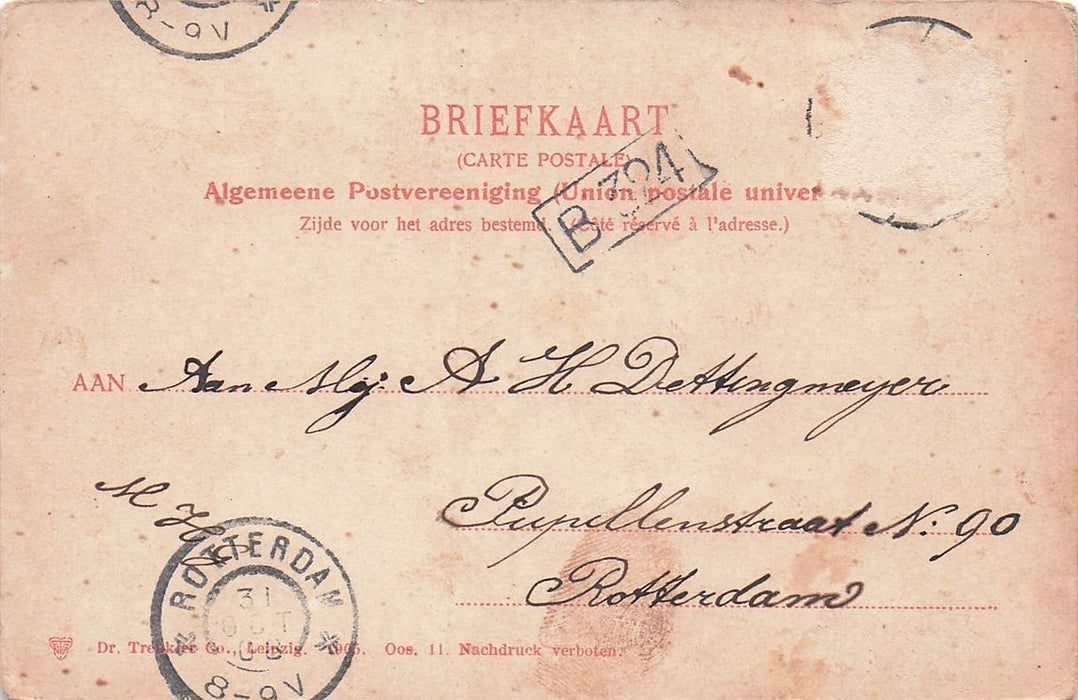 8-9V
BRIEFKAART
(CARTE POSTALE)
Algemeene Postvereeniging (Union postale univer
Zijde voor het adres bestemd. (Côté réservé à l'adresse.)
B 324
AAN Aan Mej. A H Dettingmeyer
M H
Pupillenstraat No. 90
Rotterdam
ROTTERDAM
31
OCT
03
8-9V
Dr. Trenkler Co., Leipzig. 1905. Oos. 11. Nachdruck verboten.